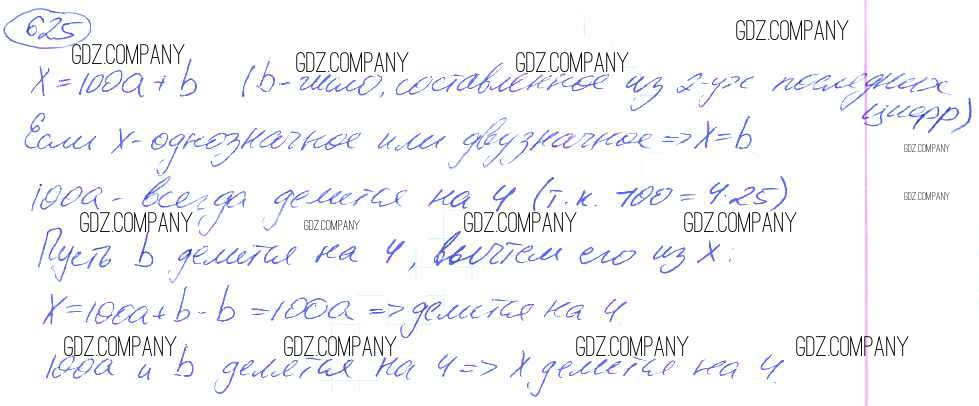 625
GDZ.COMPANY
GDZ.COMPANY GDZ.COMPANY GDZ.COMPANY
X=100a+b (b-число, составленное из 2-ух последних
цифр)
Если X-однозначное или двузначное => X=b
GDZ.COMPANY
100a - всегда делится на 4 (т.к. 100=4·25)
GDZ.COMPANY
GDZ.COMPANY GDZ.COMPANY GDZ.COMPANY GDZ.COMPANY
Пусть b делится на 4, вычтем его из X:
X=100a+b-b=100a => делится на 4
GDZ.COMPANY GDZ.COMPANY GDZ.COMPANY GDZ.COMPANY
100a и b делятся на 4 => X делится на 4.